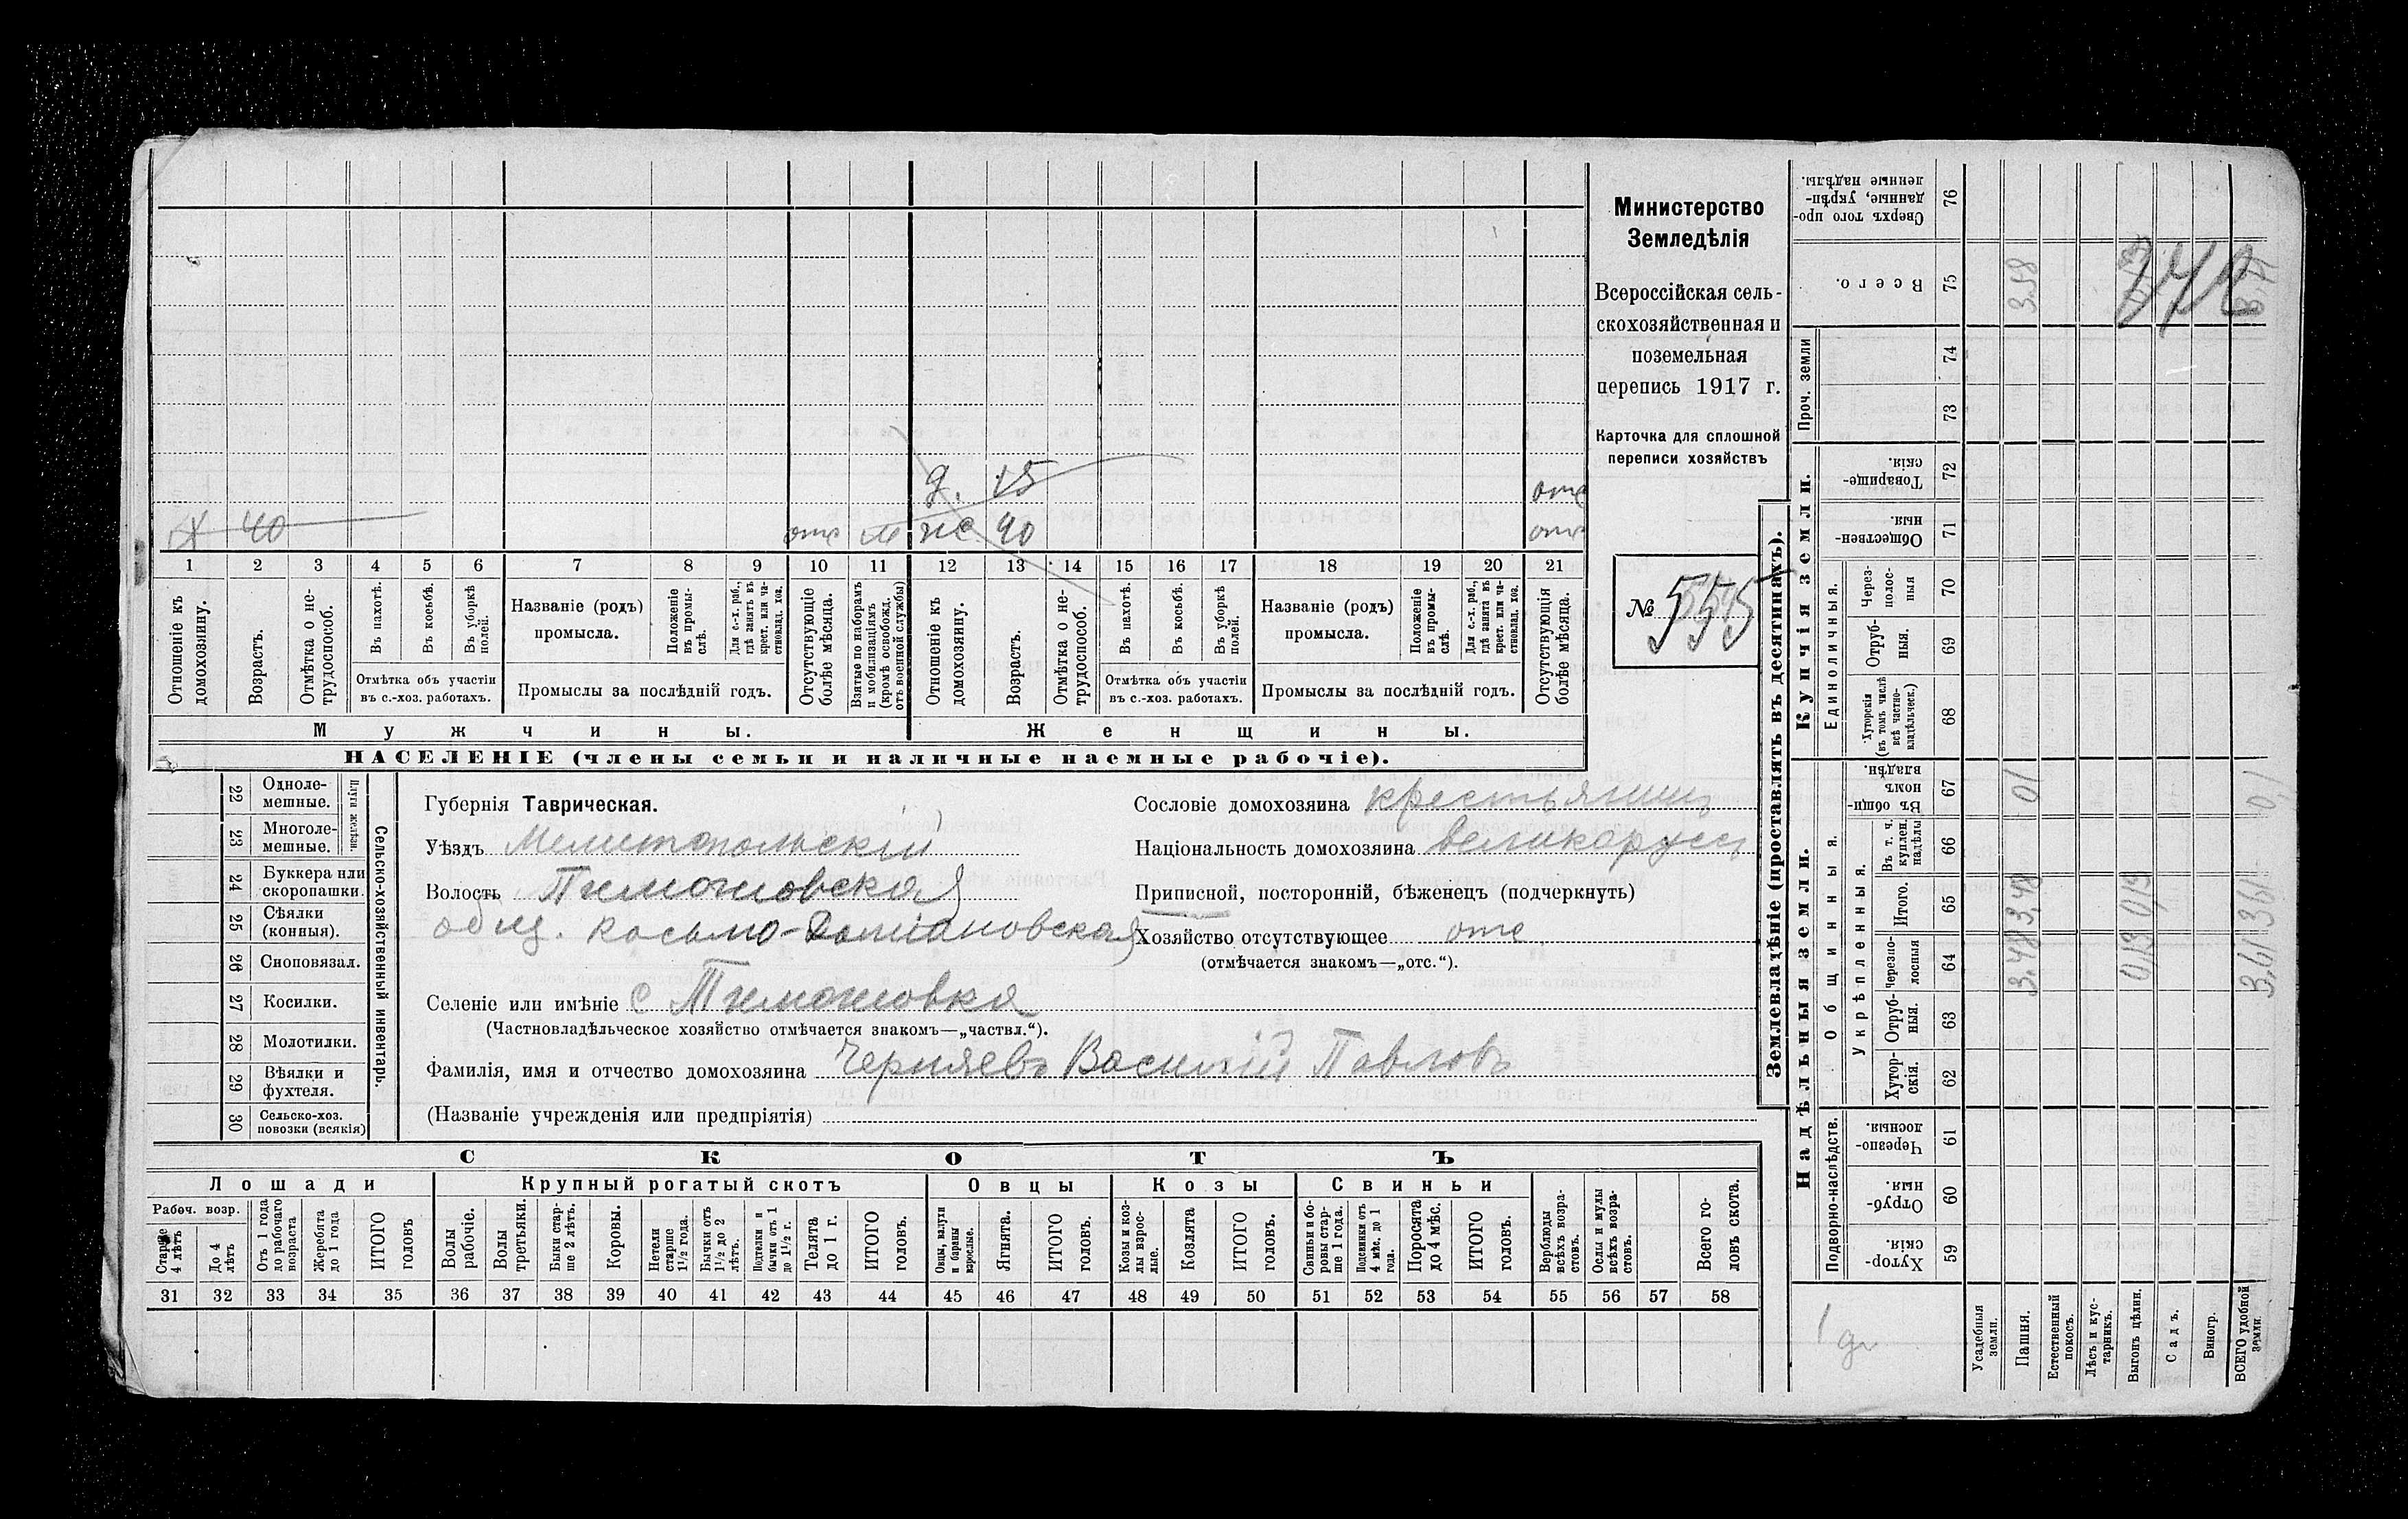 Министерство
Земледѣлія
Всероссійская сель-
скохозяйственная и
поземельная
перепись 1917 г.
Карточка для сплошной
переписи хозяйствъ
№ 555
д. 15 отс
Х 40 отс м же 40 отс
1 2 3 4 5 6 7 8 9 10 11 12 13 14 15 16 17 18 19 20 21
Отношеніе къ домохозяину.
Возрастъ.
Отмѣтка о не-трудоспособ.
Въ пахотѣ.
Въ косьбѣ.
Въ уборкѣ полей.
Отмѣтка объ участіи
въ с.-хоз. работахъ.
Названіе (родъ)
промысла.
Положеніе въ промы-слѣ.
Для с.-х. раб., гдѣ занятъ въ крест. или ча-стновлад. хоз.
Промыслы за послѣдній годъ.
Отсутствующіе болѣе мѣсяца.
Взятые по наборамъ и мобилизаціямъ (кромѣ освобожд. отъ военной службы)
Отношеніе къ домохозяину.
Возрастъ.
Отмѣтка о не-трудоспособ.
Въ пахотѣ.
Въ косьбѣ.
Въ уборкѣ полей.
Отмѣтка объ участіи
въ с.-хоз. работахъ.
Названіе (родъ)
промысла.
Положеніе въ промы-слѣ.
Для с.-х. раб., гдѣ занята въ крест. или ча-стновлад. хоз.
Промыслы за послѣдній годъ.
Отсутствующія болѣе мѣсяца.
Мужчины. Женщины.
НАСЕЛЕНІЕ (члены семьи и наличные наемные рабочіе).
22 Одноле-мешные.
23 Многоле-мешные.
Плуги желѣзн.
24 Буккера или скоропашки.
25 Сѣялки (конныя).
26 Сноповязал.
27 Косилки.
28 Молотилки.
29 Вѣялки и фухтеля.
30 Сельско-хоз. повозки (всякія)
Сельско-хозяйственный инвентарь.
Губернія Таврическая.
Уѣздъ Мелитопольскій
Волость Тимошовская
общ. Косьмо-Дамиановская
Селеніе или имѣніе с Тимошовка
(Частновладѣльческое хозяйство отмѣчается знакомъ—„частвл.“).
Фамилія, имя и отчество домохозяина Черняевъ Василій Павловъ
(Названіе учрежденія или предпріятія)
Сословіе домохозяина крестьянинъ
Національность домохозяина великоруссъ
Приписной, посторонній, бѣженецъ (подчеркнуть)
Хозяйство отсутствующее отс
(отмѣчается знакомъ—„отс.“).
СКОТЪ
Лошади Крупный рогатый скотъ Овцы Козы Свиньи
Рабоч. возр.
Старше 4 лѣтъ
До 4 лѣтъ
Отъ 1 года до рабочаго возраста
Жеребята до 1 года
ИТОГО головъ
Волы рабочіе.
Волы третьяки.
Быки стар-ше 2 лѣтъ.
Коровы.
Нетели старше 1½ года.
Бычки отъ 1½ до 2 лѣтъ.
Подтелки и бычки отъ 1 до 1½ г.
Телята до 1 г.
ИТОГО головъ.
Овцы, валухи и бараны взрослые.
Ягнята.
ИТОГО головъ.
Козы и коз-лы взрос-лые.
Козлята
ИТОГО головъ.
Свиньи и бо-ровы стар-ше 1 года.
Подсвинки отъ 4 мѣс. до 1 года.
Поросята до 4 мѣс.
ИТОГО головъ.
Верблюды всѣхъ возра-стовъ.
Ослы и мулы всѣхъ возра-стовъ.
Всего го-ловъ скота.
31 32 33 34 35 36 37 38 39 40 41 42 43 44 45 46 47 48 49 50 51 52 53 54 55 56 57 58
Землевладѣніе (проставлять въ десятинахъ).
Купчія земли.
Надѣльныя земли.
Проч. земли
Единоличныя.
Общинныя.
Укрѣпленныя.
Подворно-наслѣдств.
Сверхъ того про-данные, укрѣп-ленные надѣлы. 76
Всего. 75 3.58
74
73
Товарище-скія. 72
Обществен-ныя. 71
Через-полос-ныя 70
Отруб-ныя. 69
Хуторскія (въ томъ числѣ всѣ частно-владѣльческ.) 68
Въ общин-номъ владѣн. 67 01 01
Въ т. ч. куплен. надѣлы 66
Итого. 65 3,48 0,13 361
Черезпо-лосныя 64 3.48 0,13 3,61
Отруб-ныя. 63
Хутор-скія. 62
Черезпо-лосныя. 61
Отруб-ныя. 60
Хутор-скія. 59
Усадебныя земли.
Пашня.
Естественный покосъ.
Лѣсъ и кус-тарникъ.
Выгонъ цѣлин.
Садъ.
Виногр.
ВСЕГО удобной земли.